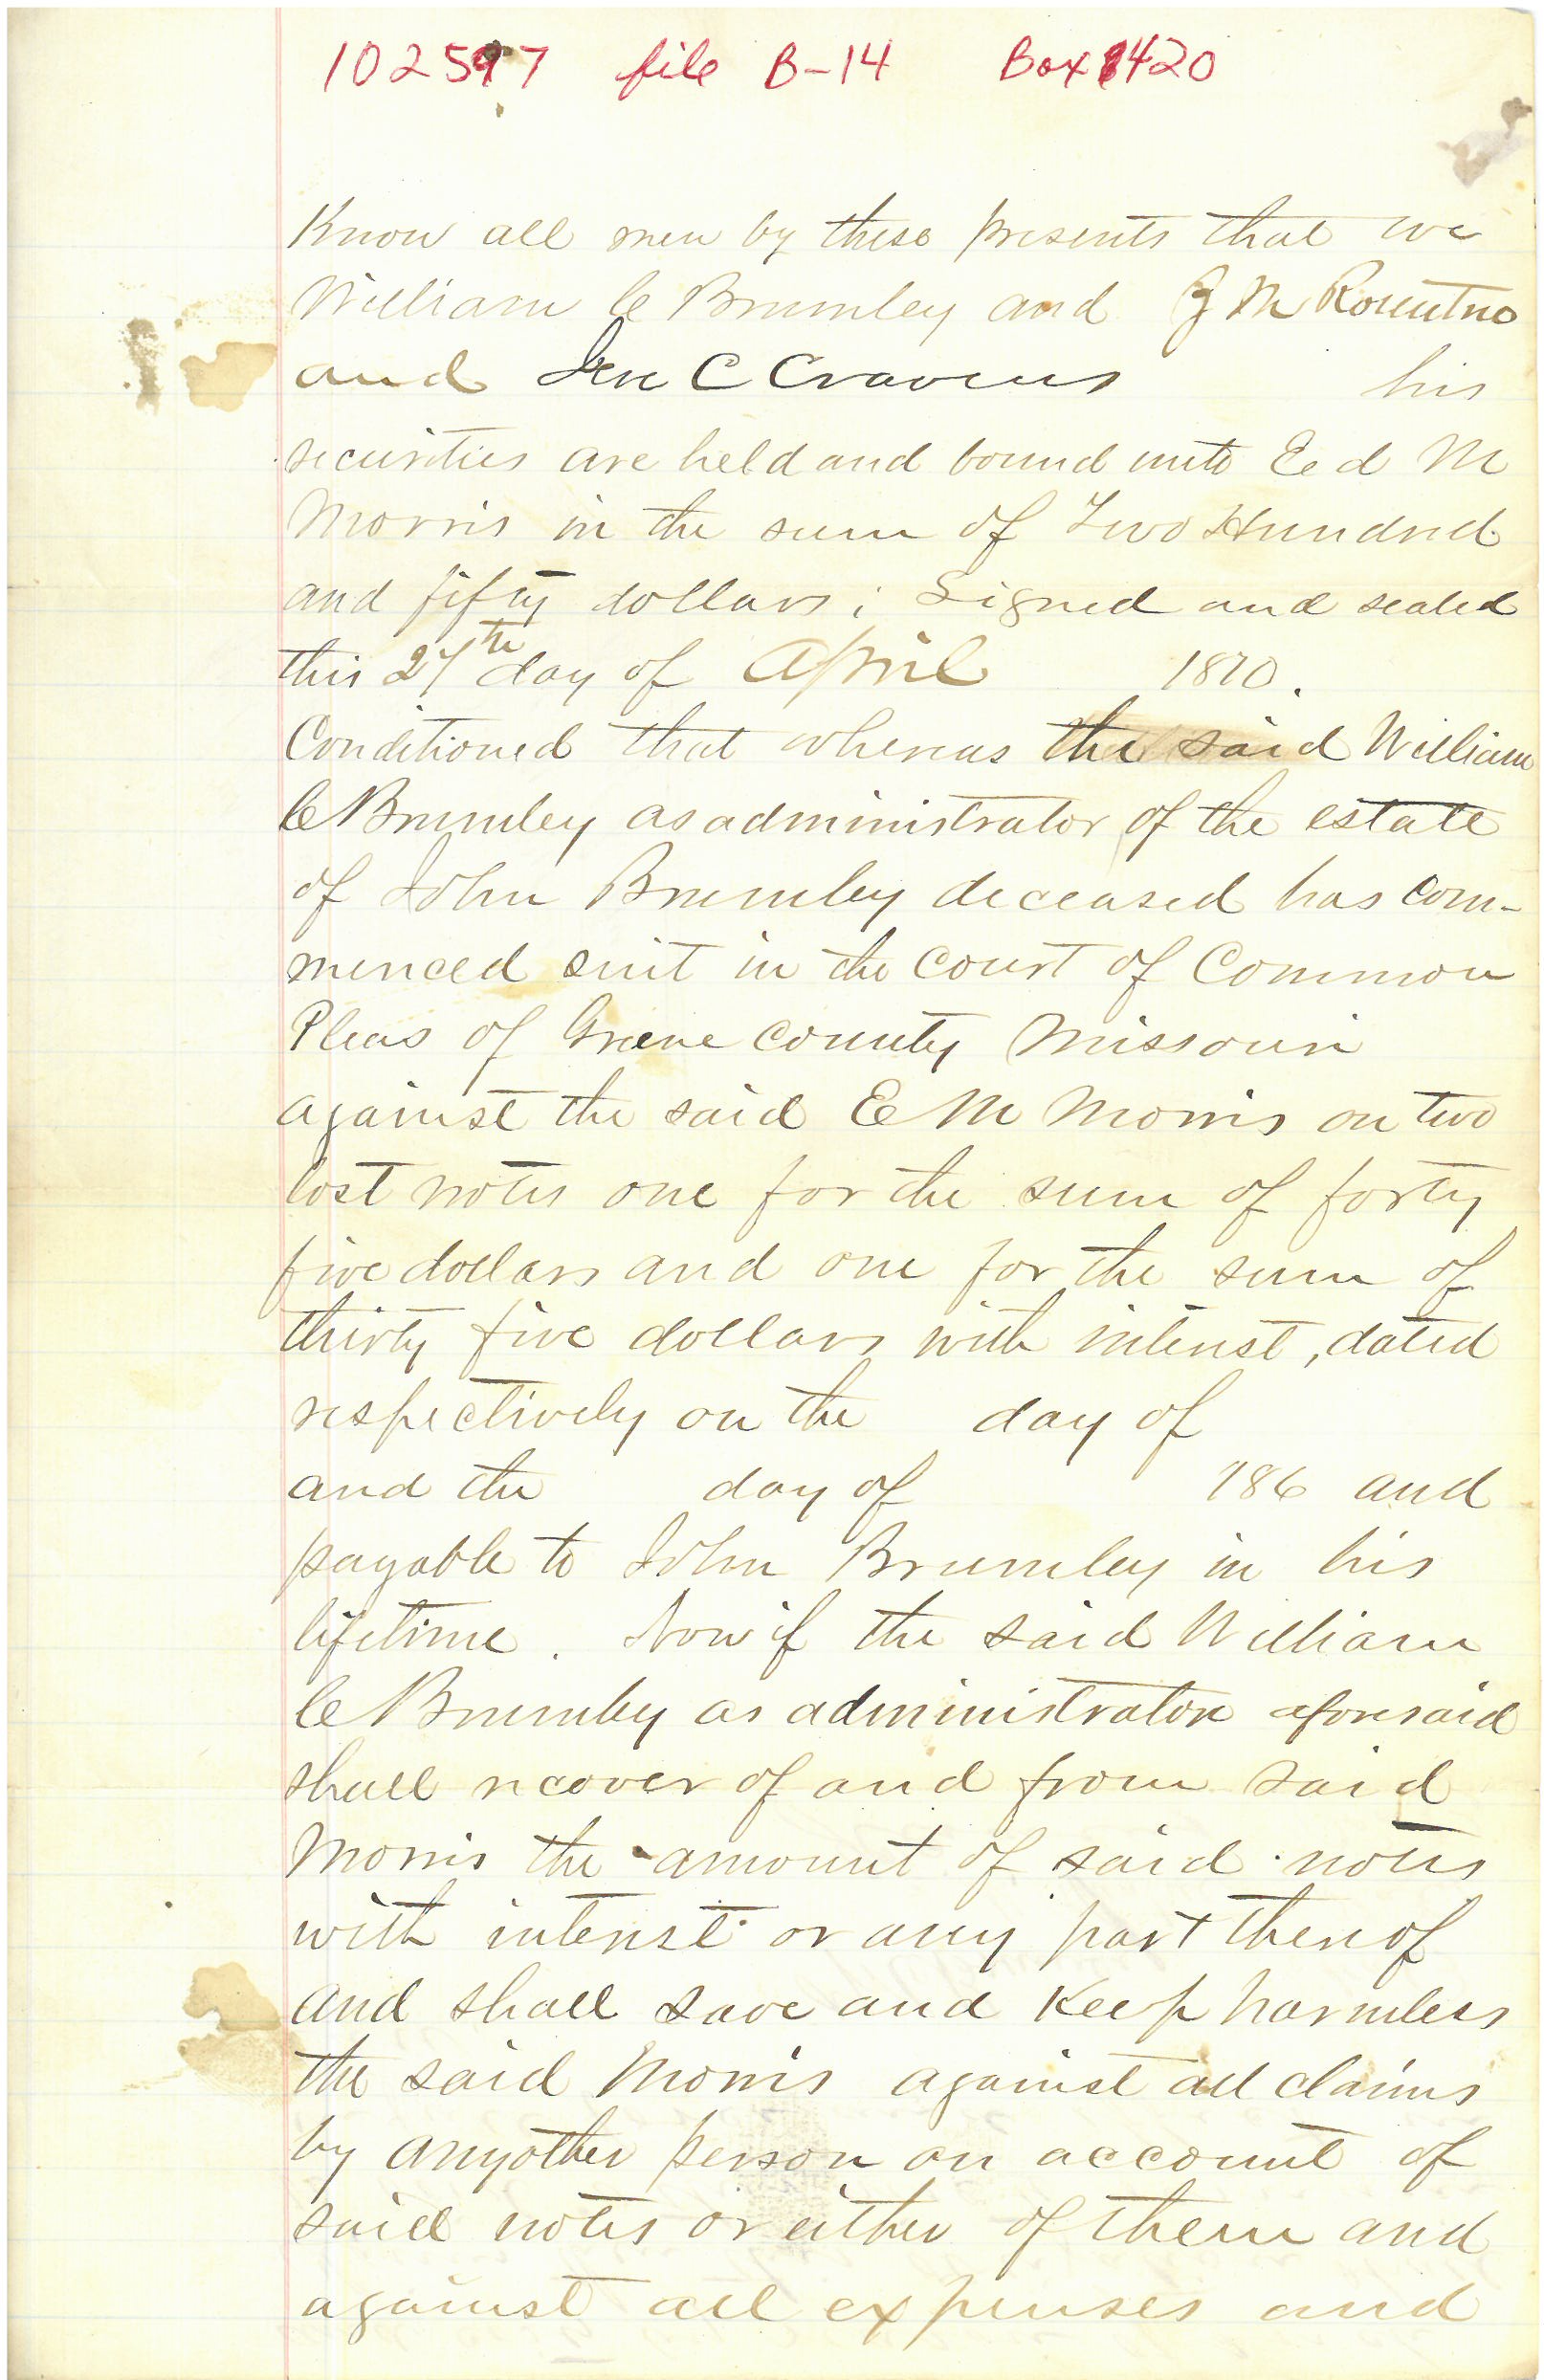 102597 file B-14 Box 1420
Know all men by these presents that we
William C Brumley and J M Rountree
and Jere C Cravens his
securities are held and bound unto Ed M
Morris in the sum of Two Hundred
and fifty dollars; Signed and sealed
this 27th day of April 1870.
Conditioned that whereas the said William
C Brumley as administrator of the estate
of John Brumley deceased has com-
menced suit in the Court of Common
Pleas of Greene County Missouri
against the said E M Morris on two
lost notes one for the sum of forty
five dollars and one for the sum of
thirty five dollars with interest, dated
respectively on the day of
and the day of 186 and
payable to John Brumley in his
lifetime. Now if the said William
C Brumley as administrator aforesaid
shall recover of and from said
Morris the amount of said notes
with interest or any part thereof
and shall save and keep harmless
the said Morris against all claims
by any other person on account of
said notes or either of them and
against all expenses and